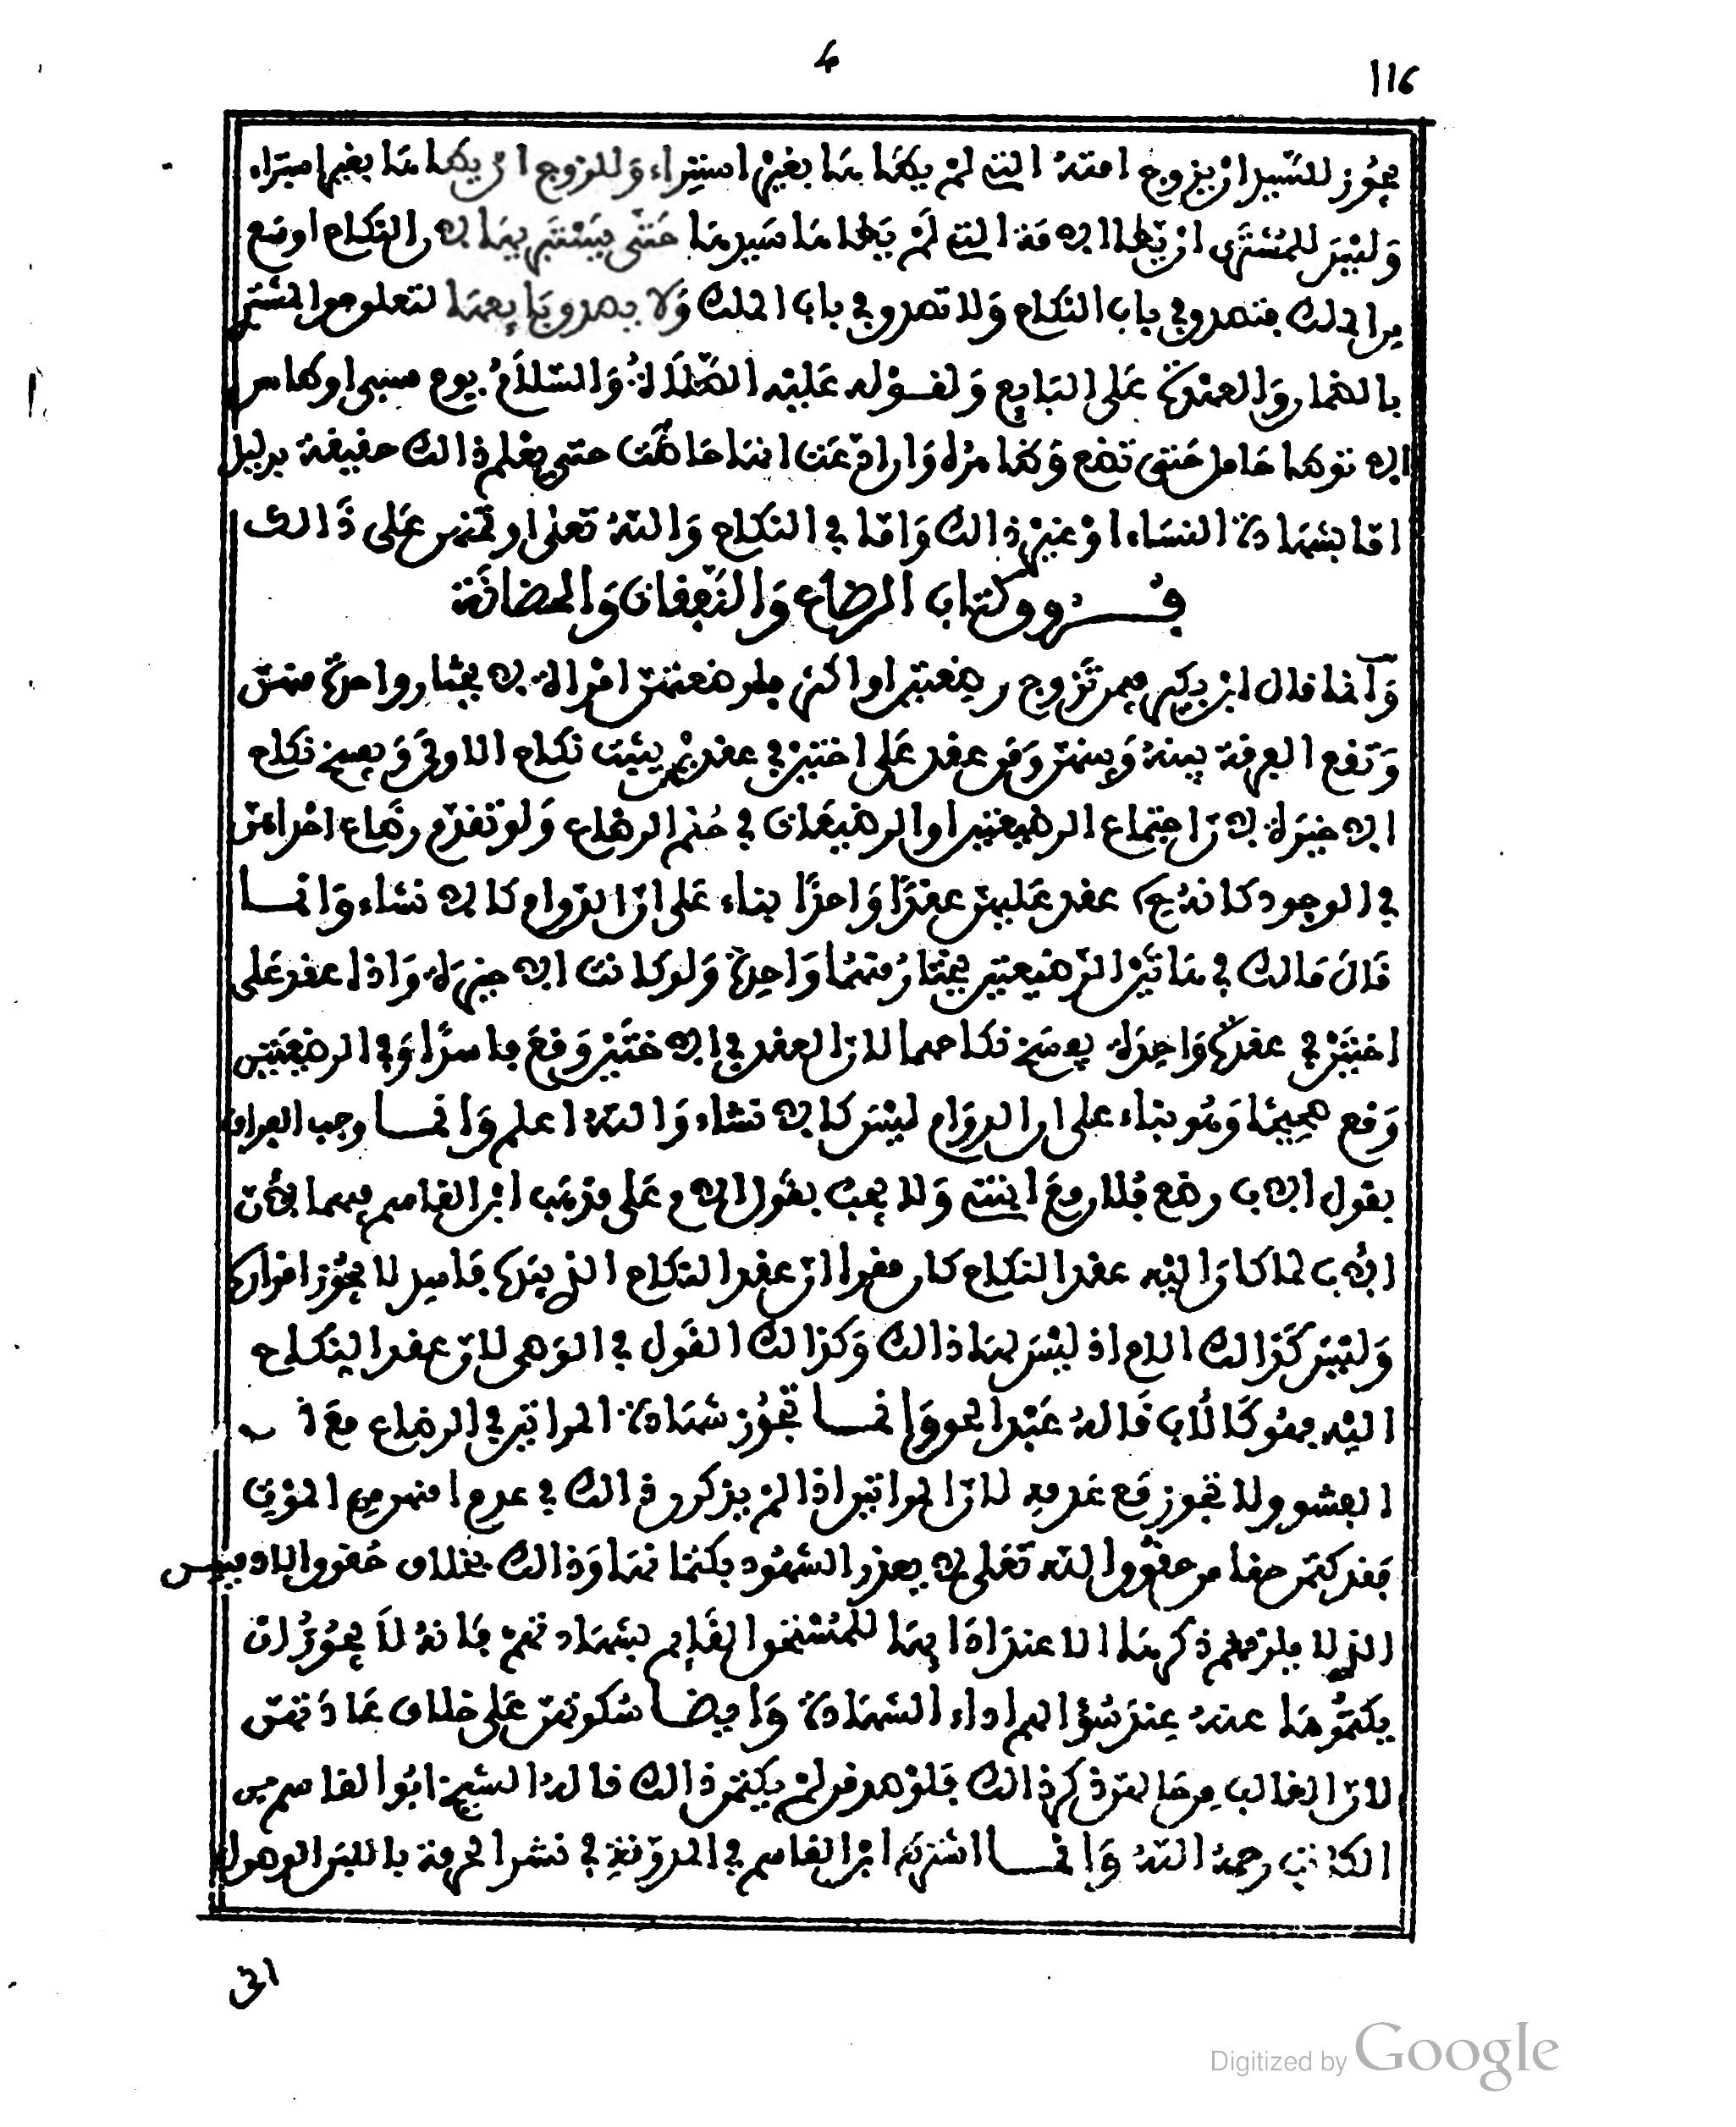 4
116
يجوز للسيد ان يزوج امته التي لم يطاها بغير استبراء وللزوج ان يطاها بغير استبراء
وليس للمشتري ان يطا الامة التي لم يطاها سيدها حتى يستبريها لان النكاح اوسع
من الملك فتصدق في باب النكاح ولا تصدق في باب الملك ولا يصدق بايعها لتعلق حق المشتري
بالضمان والعهدة على البايع ولقوله عليه الصلاة والسلام يوم سبي اوطاس
الا توطا حامل حتى تضع وطا من لا وان ادعت انها حاضت حتى يعلم ذالك حقيقة بدليل
اما بشهادة النساء او غير ذالك واما في النكاح والله تعلى اوتمنهن على ذالك
فروق كتاب الرضاع والنفقات والحضانة
وانما قال ابن بكير فيمن تزوج رضعتين او اكثر فارضعتهن امراة لا يختار واحدة منهن
وتقع الفرقة بينه وبينهن ومن عقد على اختين في عقدين يثبت نكاح الاولى ويفسخ نكاح
الاخيرة لان اجتماع الرضيعتين او الرضيعات في حكم الرضاع ولو تقدم رضاع احداهن
في الوجود كانه عقد عليهن عقدا واحدا بناء على ان الدوام كالانشاء وانما
قال مالك في هاتين الرضيعتين يختار منهما واحدة ولو كانت الاخيرة واذا عقد على
اختين في عقدة واحدة يفسخ نكاحهما لان العقد في الاختين وقع فاسدا وفي الرضيعتين
وقع صحيحا وهو بناء على ان الدوام ليس كالانشاء والله اعلم وانما وجب الفراق
بقول الاب رضع فلان مع ابنتي ولا يجب بقول الام على مذهب ابن القاسم فيهما لان
الاب لما كان اليه عقد النكاح كان مقرا ان عقد النكاح الذي بيده فاسد لا يجوز اقراره
وليس كذالك الام اذ ليس لها ذالك وكذالك القول في الوصي لان عقد النكاح
اليه فهو كالاب قاله عبد الحق وانما تجوز شهادة المراتين في الرضاع مع
الفشو ولا تجوز مع عدمه لان المراتين اذا لم يذكرن ذالك في عدم
فقد كتمن حقا من حقوق الله تعلى لا يعذر الشهود بكتمانها وذالك بخلاف حقوق الادميين
الذي لا يلزمهم ذكرها الا عند اداها للمستحق القايم بشهادتهم فانه لا يجوز ان
يكتموها عنه عند سؤالهم اداء الشهادة وايضا سكوتهن على خلاف عادتهن
لان الغالب من حالهن ذكر ذالك فلو صدقن لم يكتمن ذالك قاله الشيخ ابو القاسم بن
الكاتب رحمه الله وانما اشترط ابن القاسم في المدونة في نشر الحرمة باللبن الوصول
الى
Digitized by Google